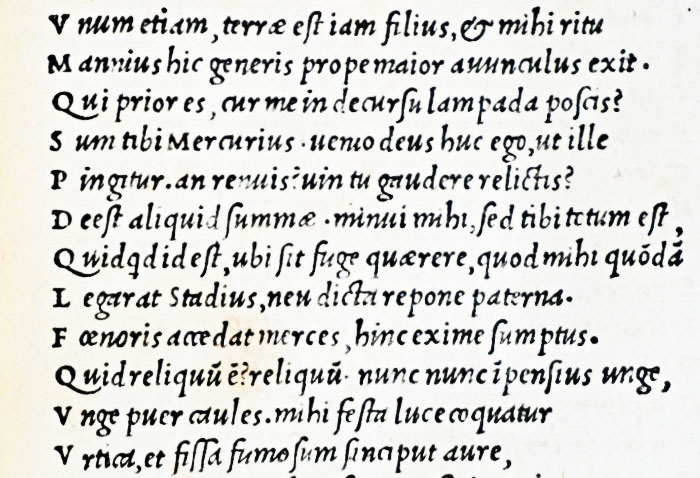 V num etiam, terræ est iam filius, & mihi ritu
M annius hic generis prope maior auunculus exit.
Q ui prior es, cur me in decursu lampada poscis?
S um tibi Mercurius. uenio deus huc ego, ut ille
P ingitur. an renuis? uin tu gaudere relictis?
D eest aliquid summæ. minui mihi, sed tibi totum est,
Q uidqd id est, ubi sit fuge quærere, quod mihi quōdā
L egarat Stadius, neu dicta repone paterna.
F œnoris accedat merces, hinc exime sumptus.
Q uid reliquũ ẽ? reliquũ. nunc nunc ĩpensius unge,
V nge puer caules. mihi festa luce coquatur
V rtica, et fissa fumosum sinciput aure,